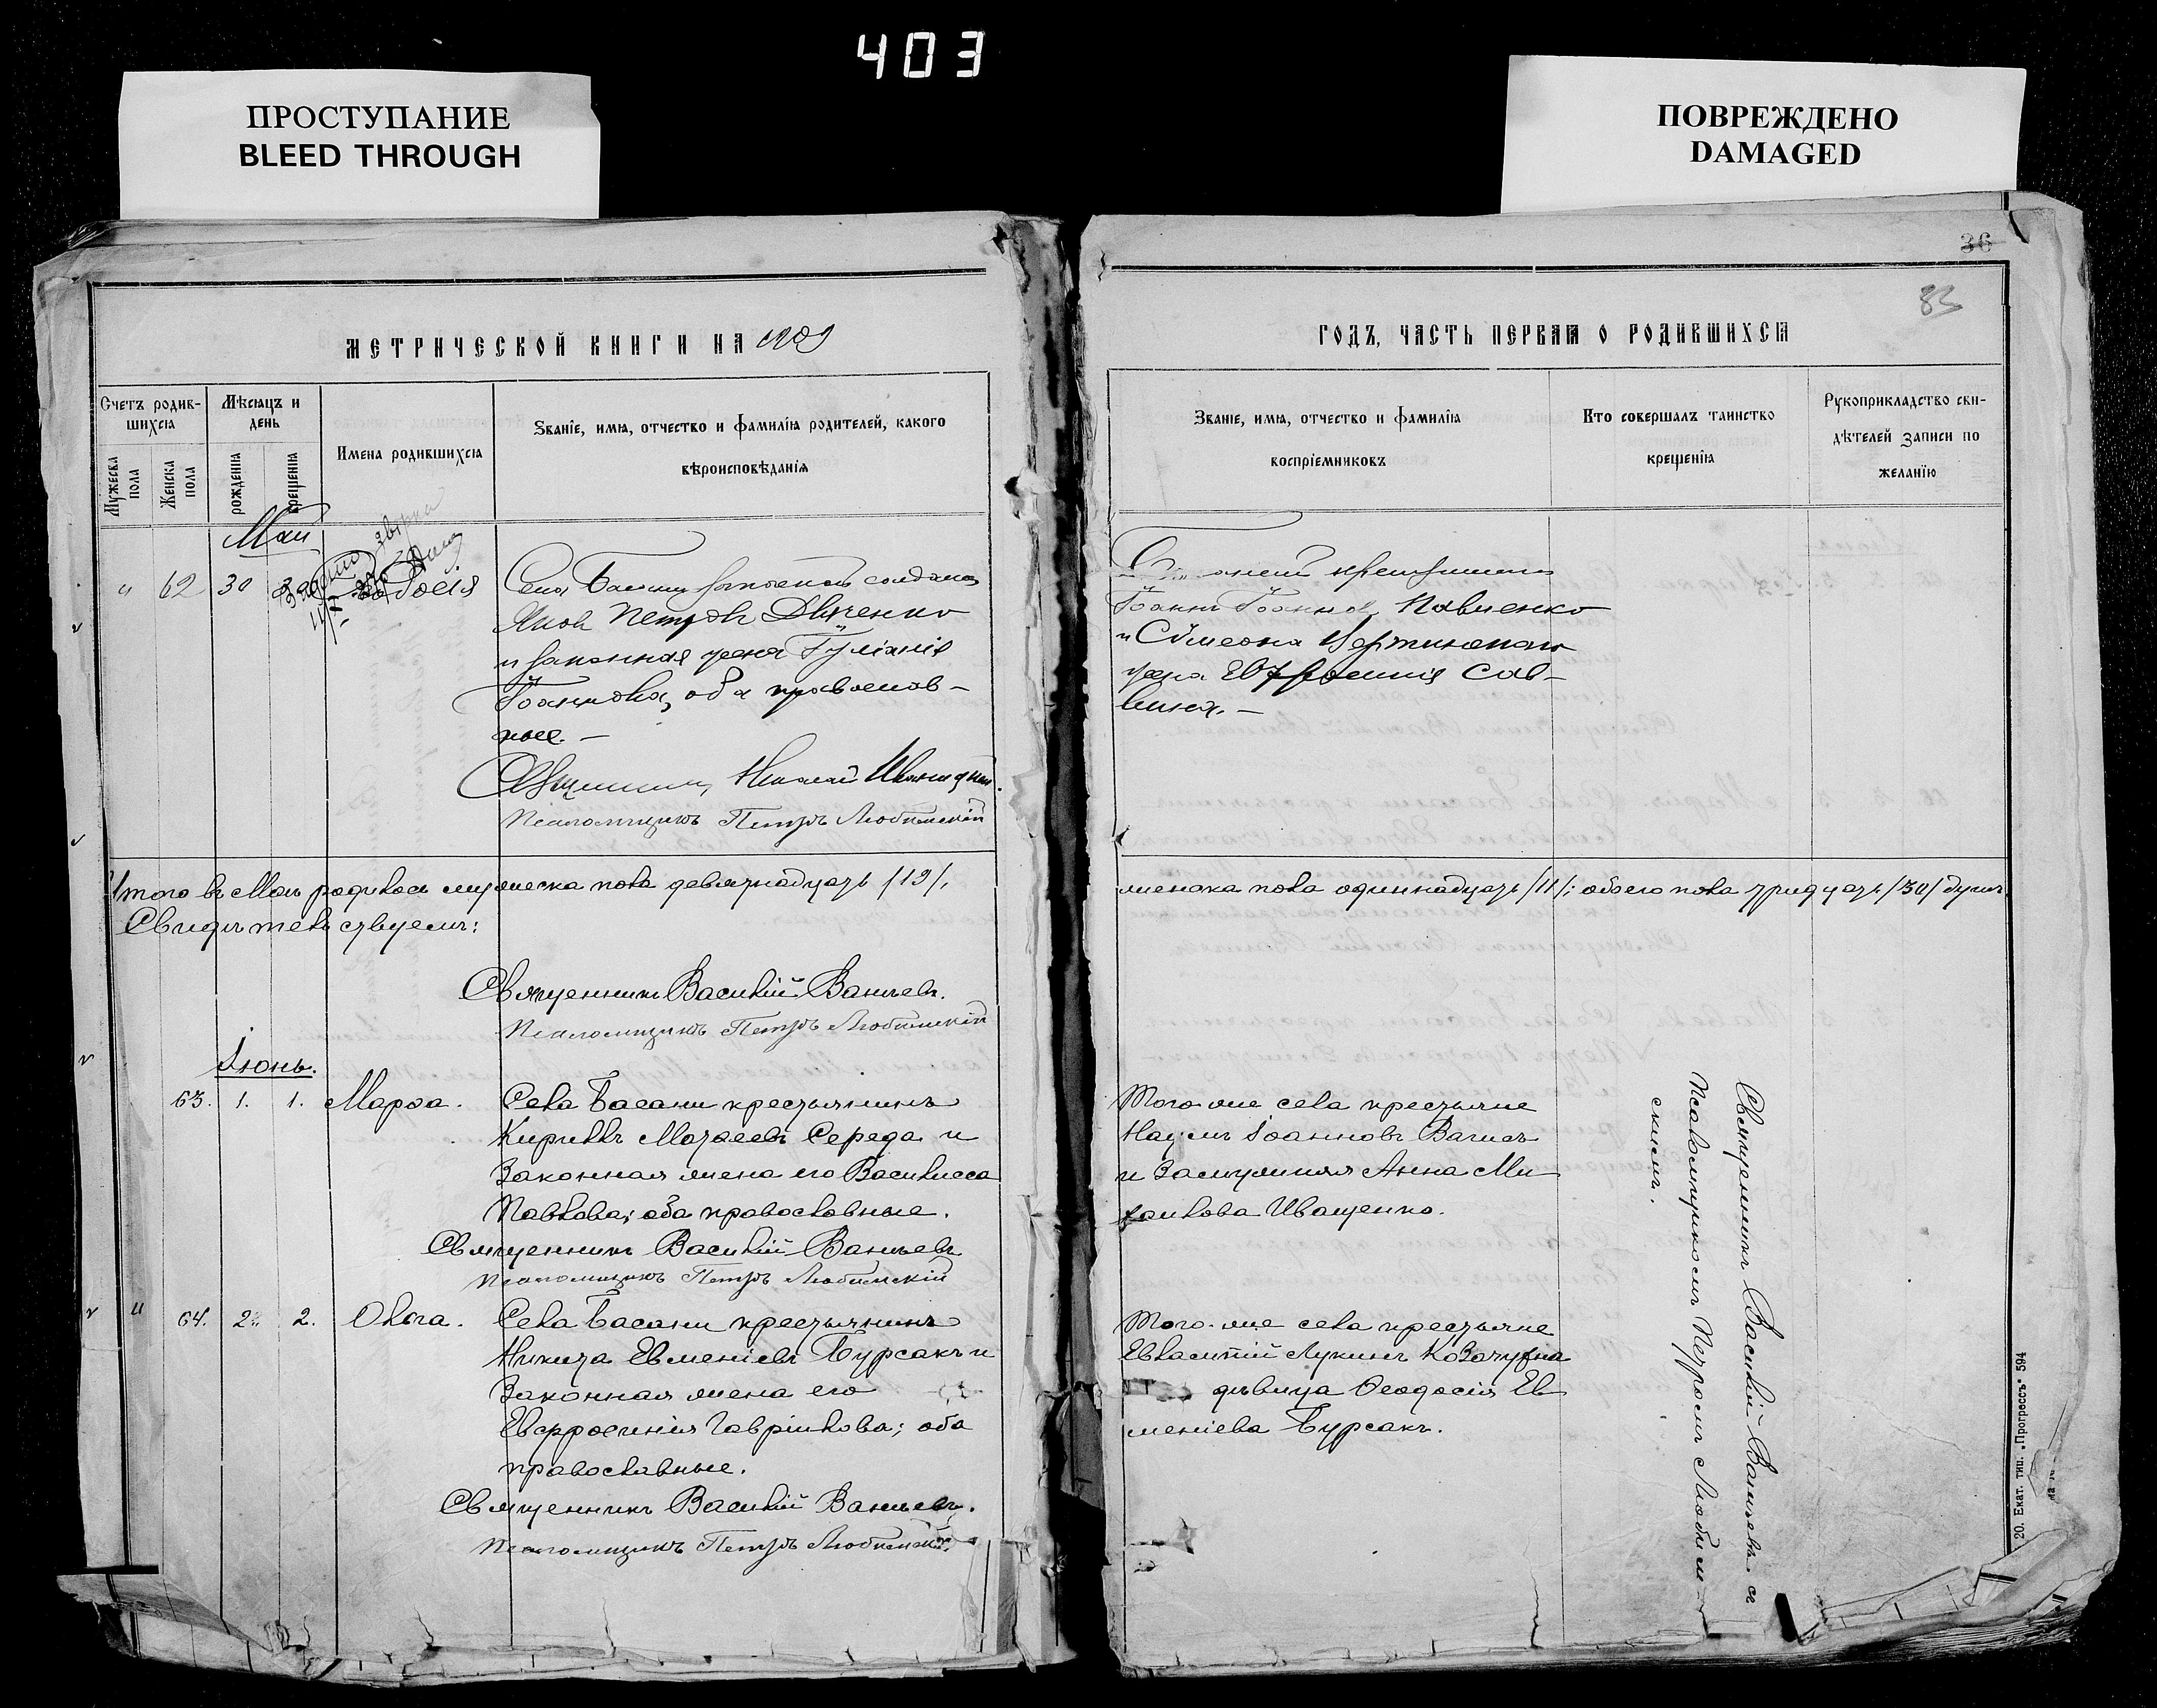 403
ПРОСТУПАНИЕ
BLEED THROUGH
ПОВРЕЖДЕНО
DAMAGED
МЕТРИЧЕСКОЙ КНИГИ НА 1909
Счетъ родив-
шихся
Мѣсяцъ и
день
Имена родившихся
Званіе, имя, отчество и фамилія родителей, какого
вѣроисповѣданія
Мужеска
пола
Женска
пола
рожденія
крещенія
Май
" 62 30
Села Басани солдатъ
Яковъ Петровъ Дяченко
и законная жена Іуліанія
Іоаннова, оба православ-
ные. —
Священникъ Николай
Псаломщикъ Петръ Любимскій
Итого въ Маѣ родилось мужеска пола девятнадцать /19/,
Свидѣтельствуемъ:
Священникъ Василій Ваньевъ.
Псаломщикъ Петръ Любимскій
Іюнь.
63. 1. 1. Марѳа. Села Басани крестьянинъ
Кириллъ Матѳеевъ Середа и
законная жена его Василисса
Павлова; оба православные.
Священникъ Василій Ваньевъ
Псаломщикъ Петръ Любимскій
" 64. 2. 2. Ольга. Села Басани крестьянинъ
Никита Евменіевъ Бурсакъ и
законная жена его
Евфросинія Гавріилова; оба
православные.
Священникъ Василій Ваньевъ.
Псаломщикъ Петръ Любимскій.
36
83
ГОДЪ, ЧАСТЬ ПЕРВАЯ О РОДИВШИХСЯ
Званіе, имя, отчество и фамилія
воспріемниковъ
Кто совершалъ таинство
крещенія
Рукоприкладство сви-
дѣтелей записи по
желанію
крестьянинъ
Іоаннъ Іоанновъ Павленко
и Сѵмеона
жена Евфросинія Сав-
вина. —
женска пола одиннадцать /11/; обоего пола тридцать /30/ душъ.
Того-же села крестьяне
Наумъ Іоанновъ Вагисъ
и замужняя Анна Ми-
хаилова Иващенко.
Того-же села крестьяне
Евлампій Лукинъ
дѣвица Ѳеодосія Ев
меніева Бурсакъ.
Священникъ Василій Ваньевъ съ
Псаломщикомъ Петромъ Любим-
скимъ.
20. Екат. тип. „Прогрессъ" 594